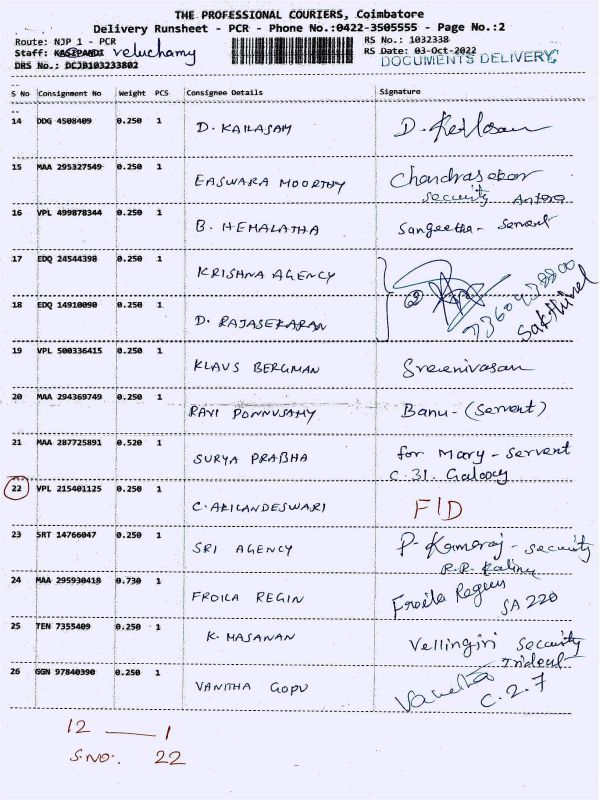 THE PROFESSIONAL COURIERS, Coimbatore
Delivery Runsheet - PCR - Phone No.:0422-3505555 - Page No.:2
Route: NJP 1 - PCR RS No.: 1032338
Staff: KASIPANDI veluchamy RS Date: 03-Oct-2022
DRS No.: DCJB103233802 DOCUMENTS DELIVERY
S No Consignment No Weight PCS Consignee Details Signature
14 DDG 4508409 0.250 1 D. KAILASAM
15 MAA 295327549 0.250 1 EASWARA MOORTHY Chandrasekar
security
16 VPL 499878344 0.250 1 B. HEMALATHA Sangeetha - Servent
17 EDQ 24544398 0.250 1 KRISHNA AGENCY
18 EDQ 14910090 0.250 1 D. RAJASEKARAN Sakthivel
19 VPL 500336415 0.250 1 KLAUS BERGMAN Sreenivasan
20 MAA 294369749 0.250 1 RAVI PONNUSAMY Banu - (Servent)
21 MAA 287725891 0.520 1 SURYA PRABHA for Mary - Servent
C.31. Galaxy
22 VPL 215401125 0.250 1 C. AKILANDESWARI F/D
23 SRT 14766047 0.250 1 SRI AGENCY P. Kamaraj - security
24 MAA 295930418 0.730 1 FROILA REGIN Froila Regin
SA 220
25 TEN 7355409 0.250 1 K. MASANAN Vellingiri Security
Trident
26 GGN 97840390 0.250 1 VANITHA GOPU Vanitha
C.2.7
12 — 1
S.NO. 22